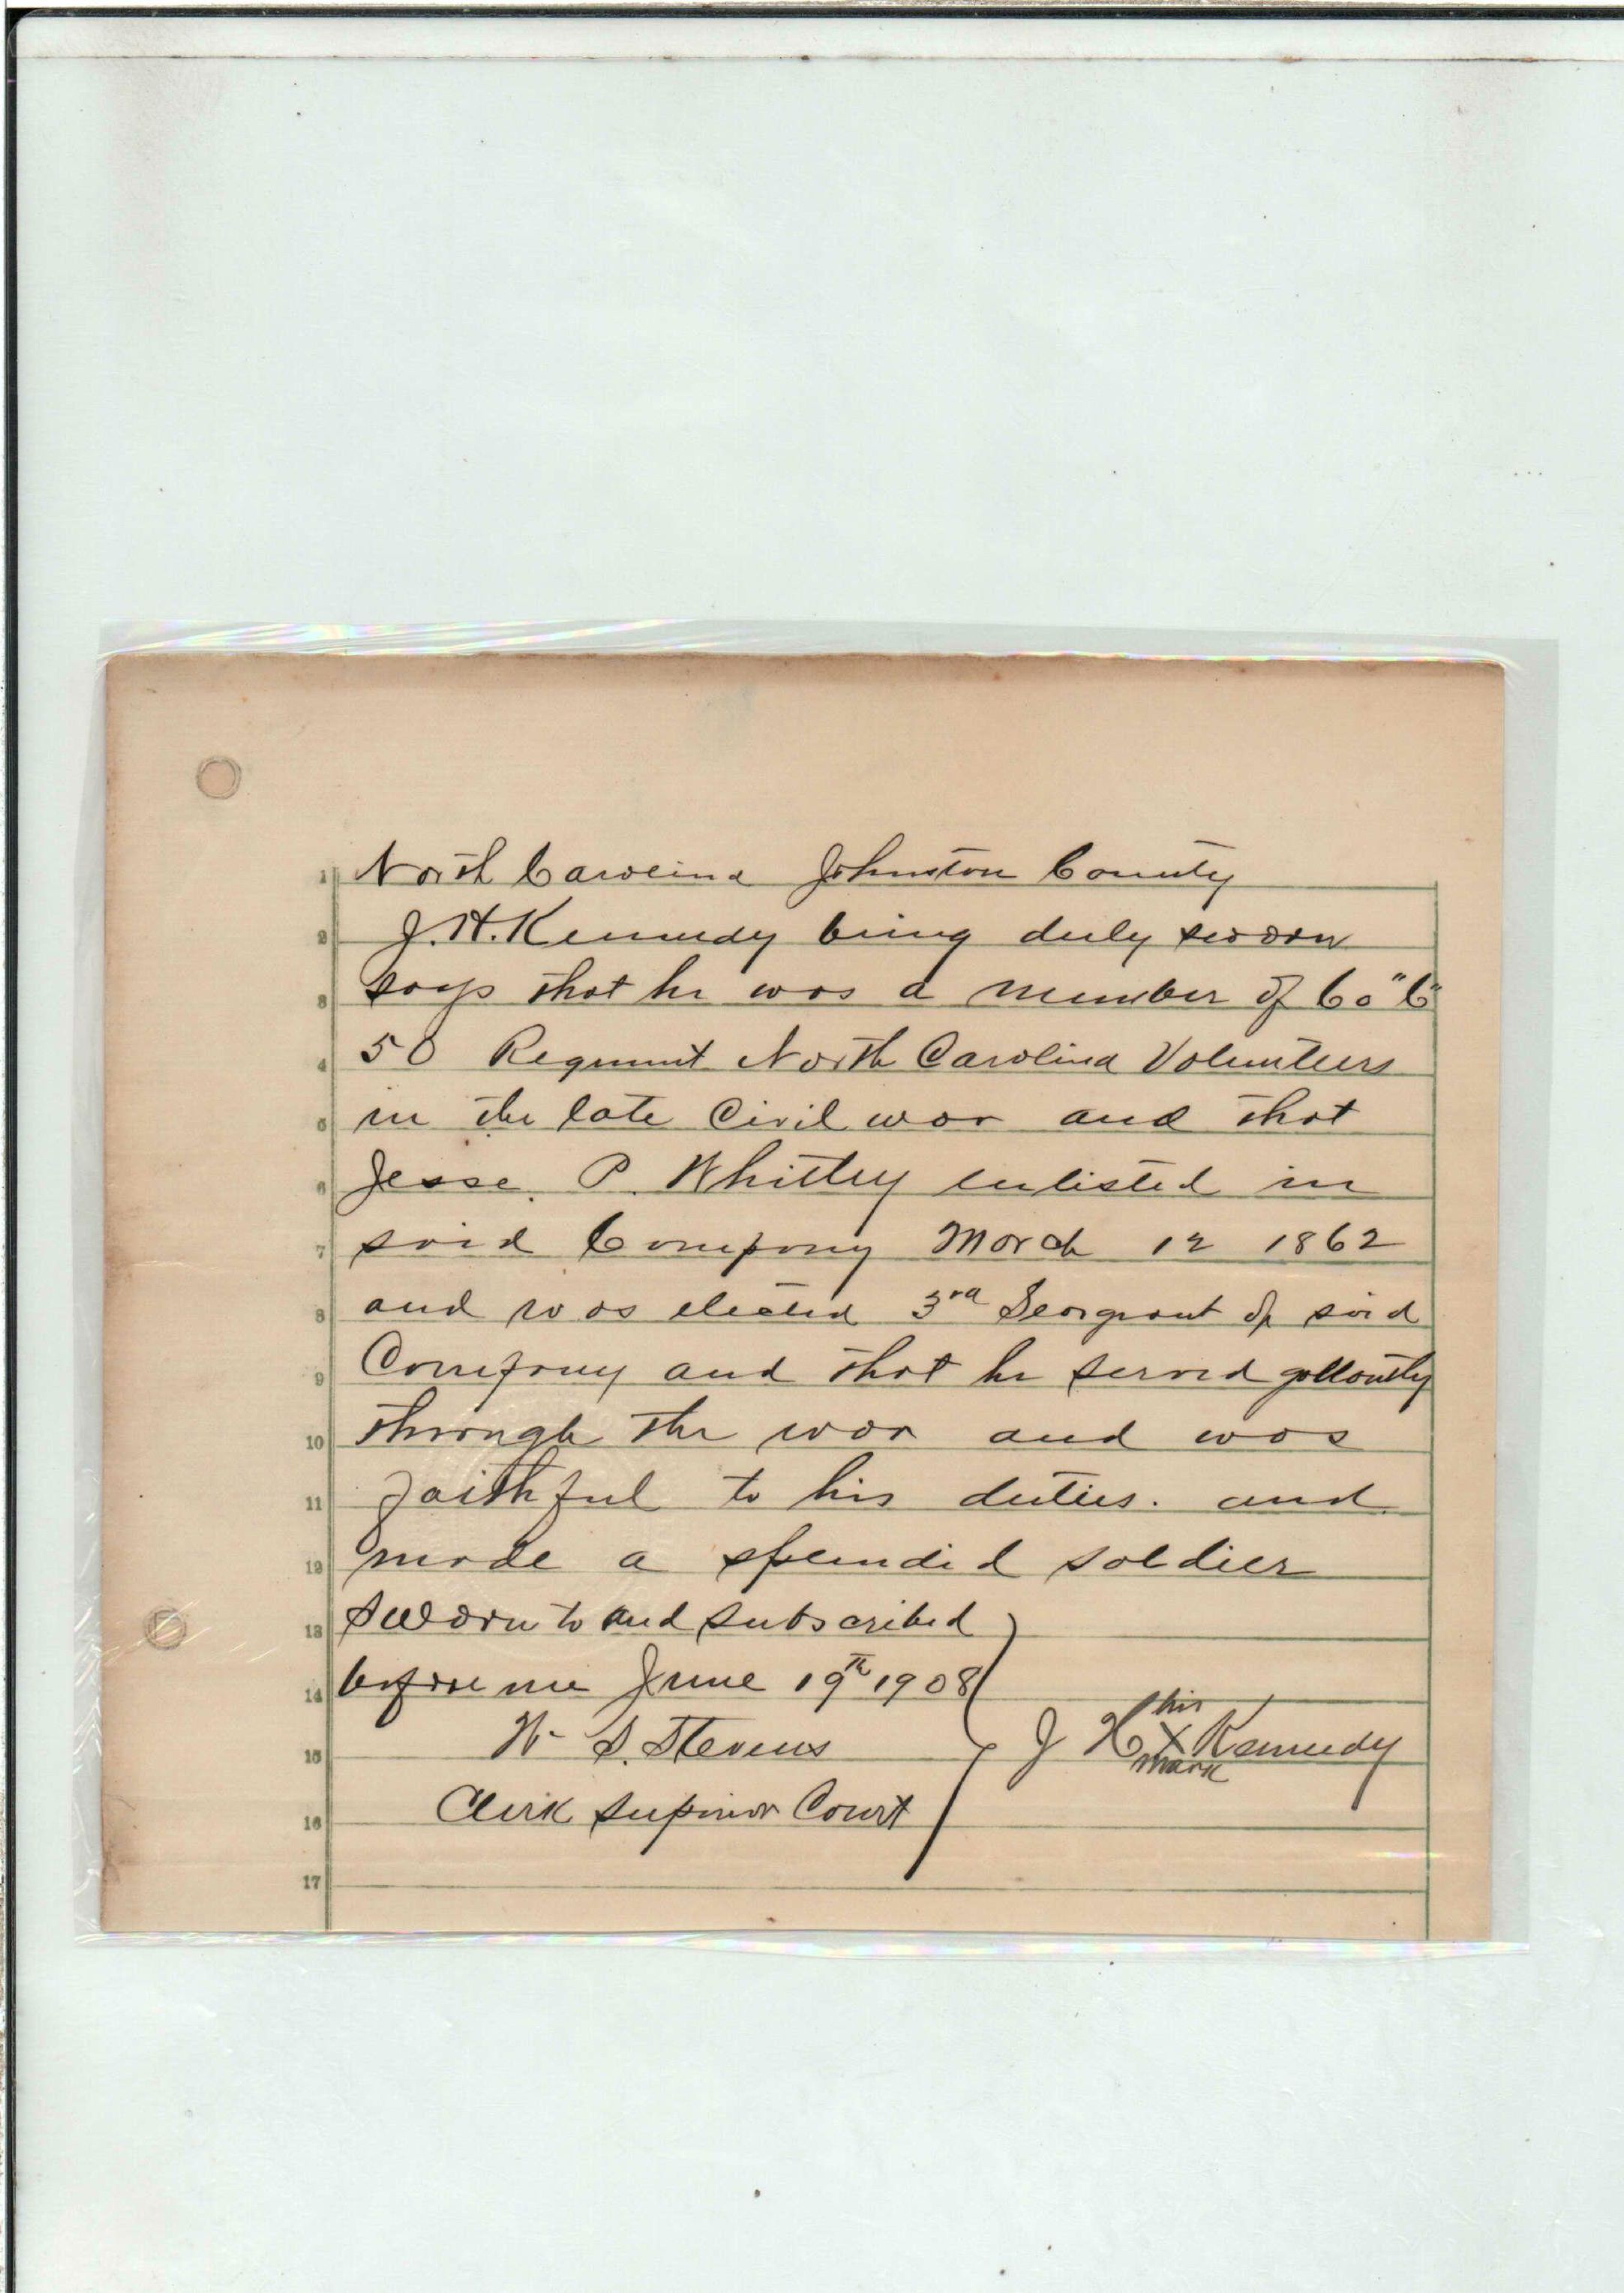 1 North Carolina Johnston County
2 J. H. Kennedy being duly sworn
3 says that he was a member of Co "C"
4 50 Regiment North Carolina Volunteers
5 in the late Civil war and that
6 Jesse. P. Whitley enlisted in
7 said Company March 12 1862
8 and was elected 3rd Seargeant of said
9 Company and that he served gallantly
10 through the war and was
11 faithful to his duties. and
12 made a splendid soldier
13 Sworn to and subscribed
14 before me June 19th 1908
his
15 W. S. Stevens J H X Kennedy
mark
16 Clerk Superior Court
17